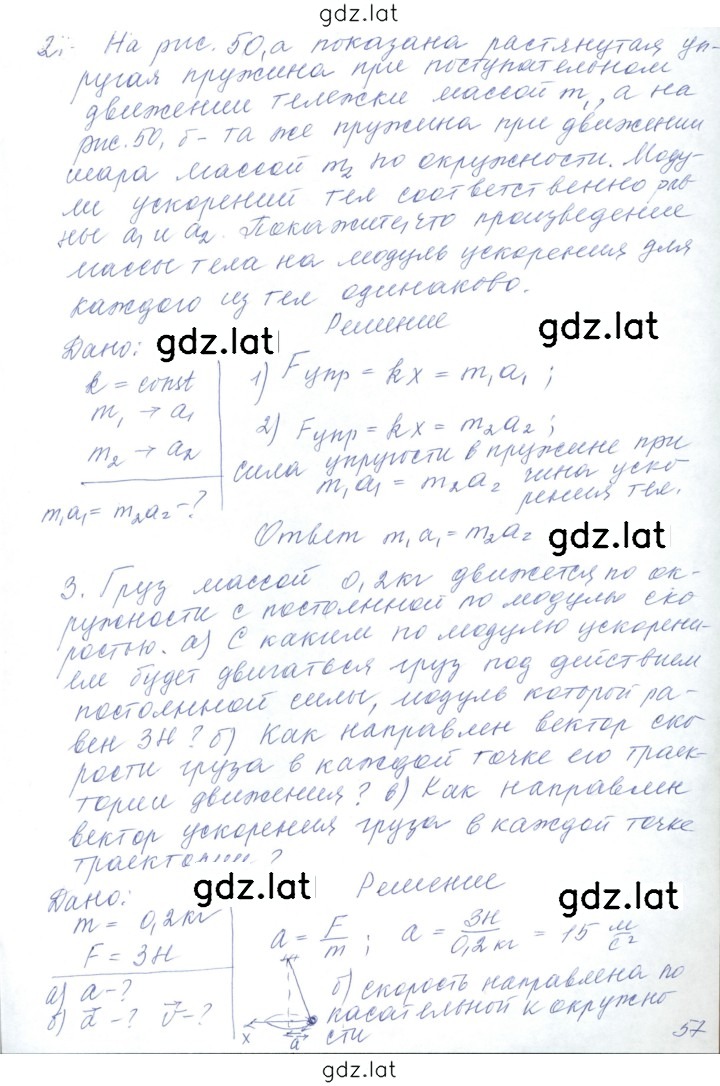 gdz.lat
2. На рис. 50, а показана растянутая уп-
ругая пружина при поступательном
движении тележки массой m₁, а на
рис. 50, б - та же пружина при движении
шара массой m₂ по окружности. Моду-
ли ускорений тел соответственно рав-
ны a₁ и a₂. Покажите, что произведение
массы тела на модуль ускорения для
каждого из тел одинаково.
Решение
Дано: gdz.lat gdz.lat
k = const
m₁ → a₁
m₂ → a₂
m₁a₁ = m₂a₂ - ?
1) Fупр = kx = m₁a₁ ;
2) Fупр = kx = m₂a₂ ;
сила упругости в пружине при
m₁a₁ = m₂a₂ чина уско
рения тел.
Ответ m₁a₁ = m₂a₂ gdz.lat
3. Груз массой 0,2 кг движется по ок-
ружности с постоянной по модулю ско
ростью. а) С каким по модулю ускорени-
ем будет двигаться груз под действием
постоянной силы, модуль которой ра-
вен 3Н? б) Как направлен вектор ско
рости груза в каждой точке его траек-
тории движения? в) Как направлен
вектор ускорения груза в каждой точке
траектории ?
Дано: gdz.lat Решение gdz.lat
m = 0,2 кг
F = 3Н
а) a - ?
б) a⃗ - ? v⃗ - ?
a = F/m ; a = 3Н/0,2 кг = 15 м/с²
б) скорость направлена по
касательной к окружно
сти
x
a⃗
57
gdz.lat